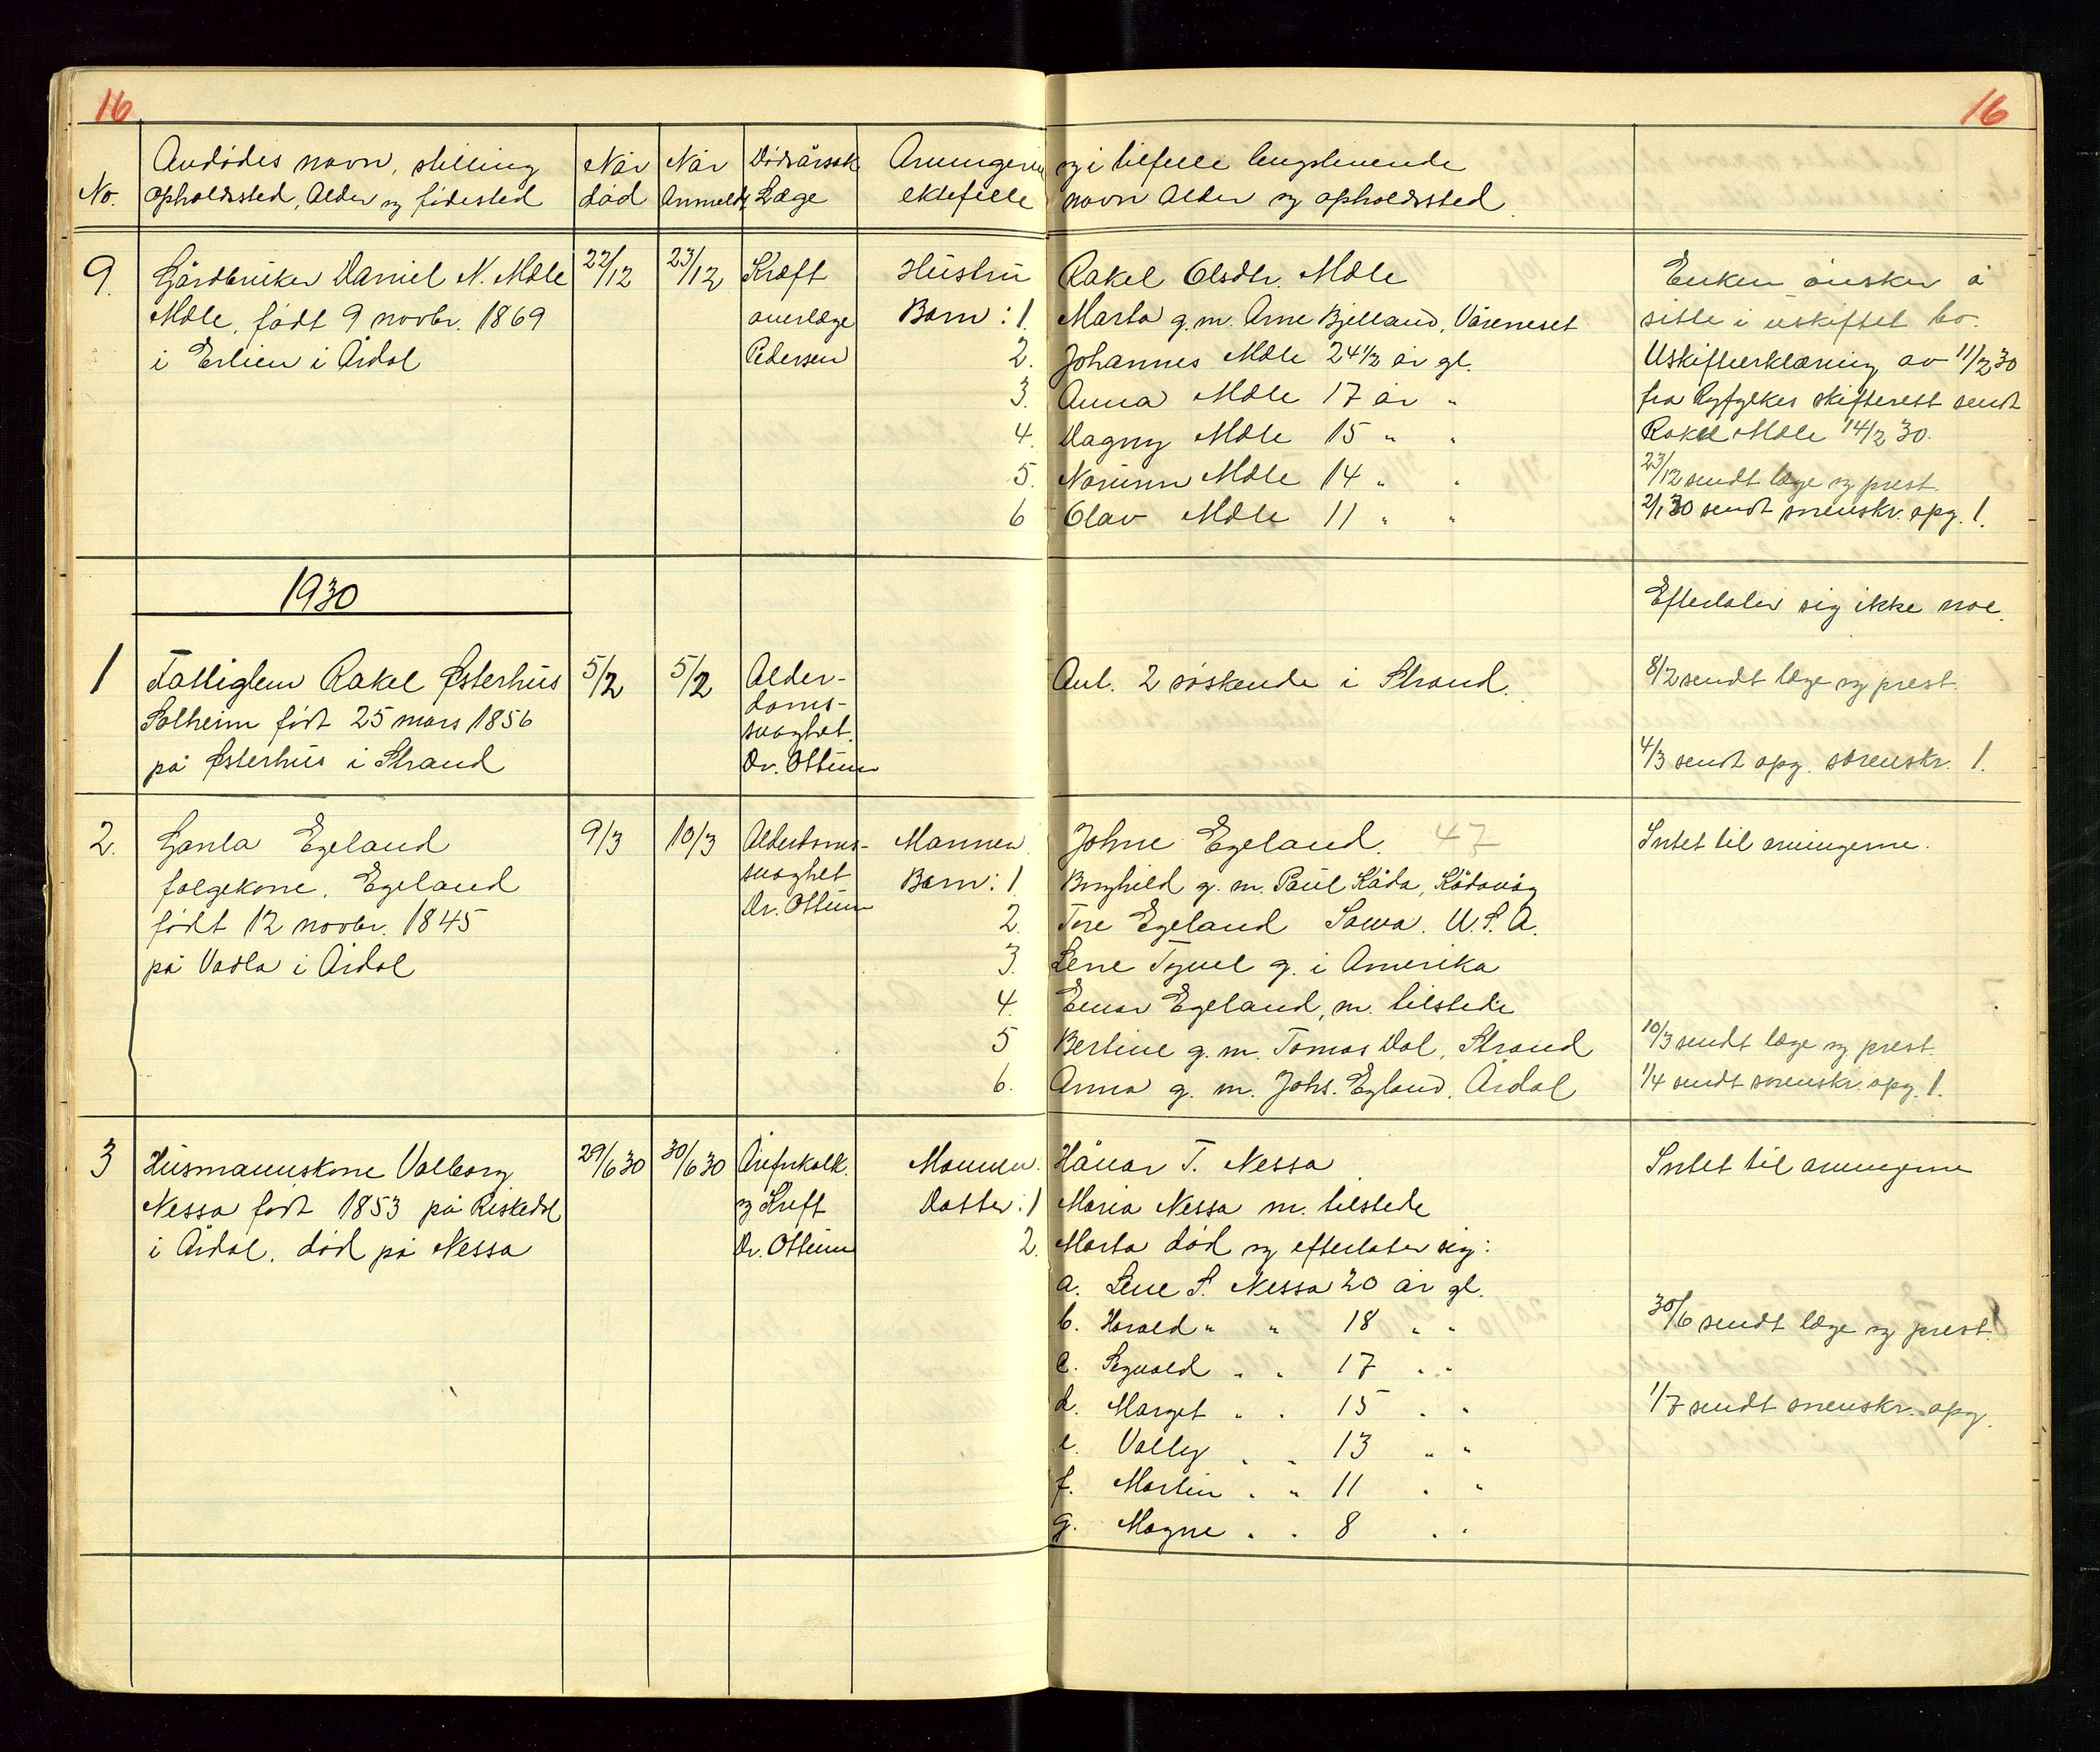 16
16
No.
Avdødes navn, stilling
opholdssted, Alder og fødested
Når
død
Når
Anmeldt
Dødsårsak
Læge
Arvingerne og i tilfelle lengstlevende
ektefelle navn Alder og opholdssted
9.
Gårdbruker Daniel N. Mæle
Mæle, født 9 novbr. 1869
i Erlien i Årdal
22/12
23/12
Kræft
overlæge
Pedersen
Hustru Rakel Olsdtr. Mæle
Barn: 1. Marta g.m. Arne Bjelland, Våreneset
2. Johannes Mæle 24½ år gl.
3. Anna Mæle 17 år "
4. Dagny Mæle 15 " "
5. Mæle 14 " "
6 Olav Mæle 11 " "
Enken ønsker å
sitte i uskiftet bo.
Uskifteerklæring av 11/2 30
fra Ryfylkes skifterett sendt
Rakel Mæle 14/2 30.
23/12 sendt læge og prest.
2/1 30 sendt sorenskr. opg. 1.
1930
1
Fattiglem Rakel Østerhus
Solheim født 25 mars 1856
på Østerhus i Strand
5/2
5/2
Alder-
doms-
svaghet.
Dr. Ottum
Ant. 2 søskende i Strand.
Efterlater sig ikke noe.
8/2 sendt læge og prest.
4/3 sendt opg. sorenskr. 1.
2.
Egeland
folgekone, Egeland
født 12 novbr. 1845
på Vadla i Årdal
9/3
10/3
Alderdoms-
svaghet
Dr. Ottum
Mannen Johne Egeland. 47
Barn: 1 Borghild g. m. Paul Kåda, Kådavåg
2. Tore Egeland Iowa. U.S.A.
3. Lene g. i Amerika
4. Einar Egeland, m. tilstede
5 Bertine g. m. Tomas Dal, Strand
6. Anna g. m. Johs. Egland, Årdal
Intet til arvingerne.
10/3 sendt læge og prest
1/4 sendt sorenskr. opg. 1.
3
Husmannskone Valborg
Nessa født 1853 på Riskedal
i Årdal. død på Nessa
29/6 30
30/6 30
Årefrkalk.
og Kreft
Dr. Ottum
Mannen. Håvar T. Nessa
Datter: 1 Maria Nessa m. tilstede
2. Marta død og efterlater sig:
a. Lene S. Nessa 20 år gl.
b. Harald " " 18 " "
c. Sigvald " " 17 " "
d. Marget " " 15 " "
e. Valley " " 13 " "
f. Martin " " 11 " "
g. Magne " " 8 " "
Intet til arvingerne
30/6 sendt læge og prest!
1/7 sendt sorenskr. opg.